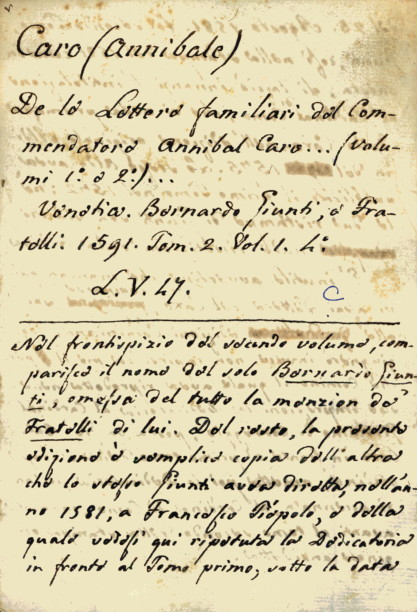 Caro (Annibale)
De le Lettere familiari del Com-
mendatore Annibal Caro... (volu-
mi 1.º e 2.º)...
Venetia. Bernardo Giunti, e Fra-
telli. 1591. Tom. 2. Vol. 1. 4.º
L. V. 47.
C
Nel frontispizio del secondo volume, com-
parisce il nome del solo Bernardo Giun-
ti, omessa del tutto la menzion de'
Fratelli di lui. Del resto, la presente
edizione è semplice copia dell'altra
che lo stesso Giunti avea diretta, nell'an-
no 1581, a Francesco Piopolo, e della
quale vedesi qui ripetuta la Dedicatoria
in fronte al Tomo primo, sotto la data